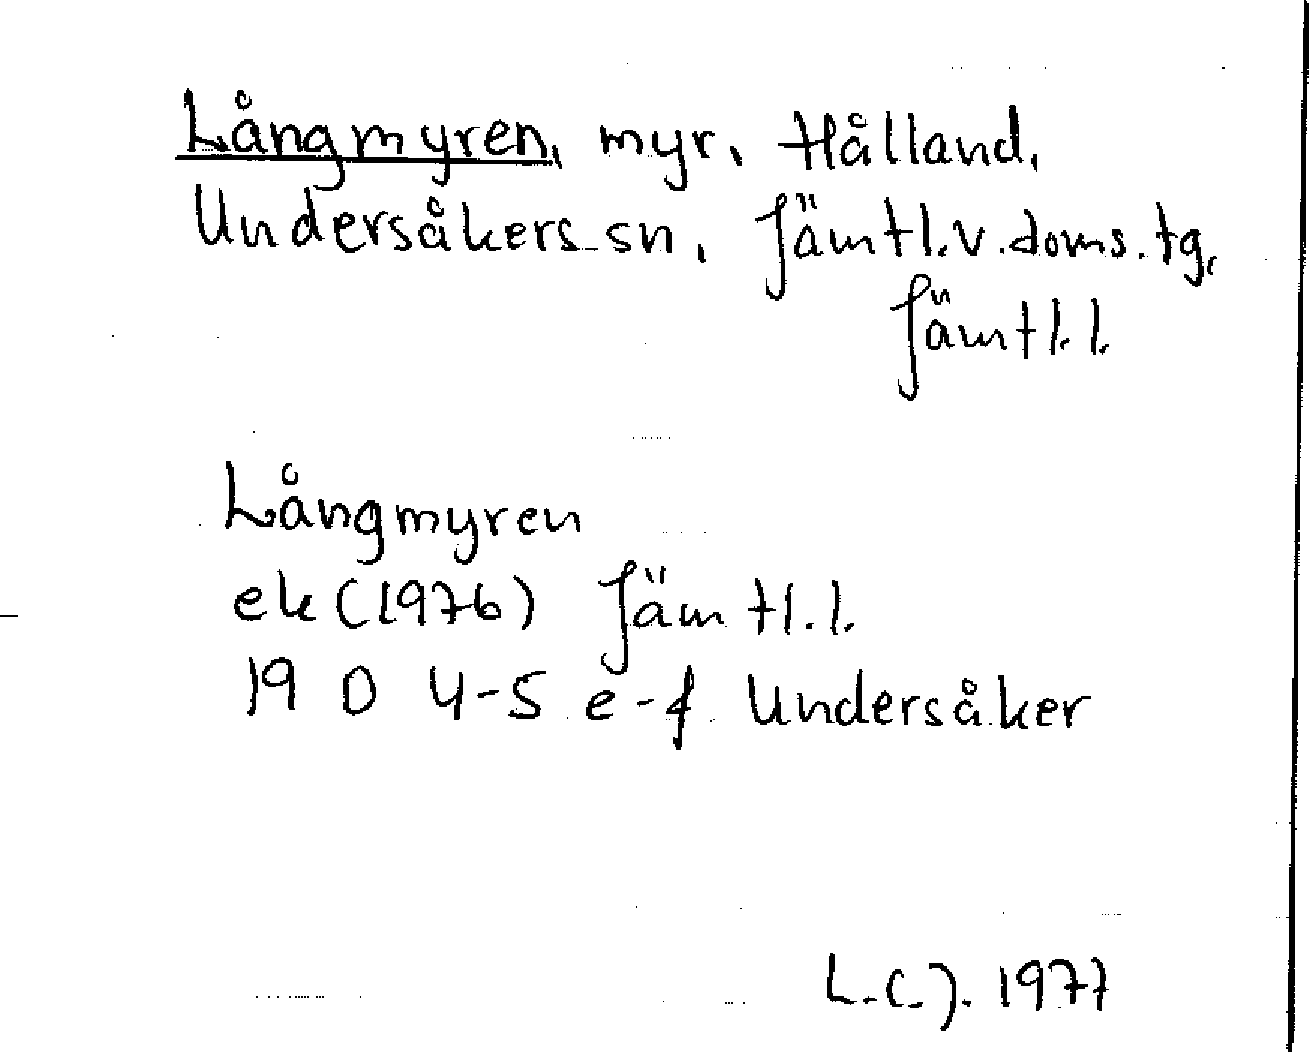 Långmyren, myr, Hålland,
Undersåkers sn, Jämtl.v.doms.tg,
Jämtl.l.
Långmyren
ek (1976) Jämtl.l.
19 D 4-5 e-f Undersåker
L.C.J. 1977